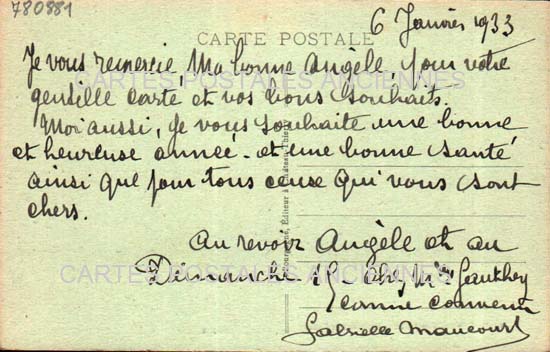 780881
6 Janvier 1933
CARTE POSTALE
Je vous remercie, Ma bonne Angèle pour votre
CARTES POSTALES ANCIENNES
gentille carte et vos bons souhaits.
Moi aussi, je vous souhaite une bonne
et heureuse année - et une bonne santé
ainsi que pour tous ceux qui vous sont
chers.
Au revoir Angèle et au
Dimanche 15 - chez Mme Gauthey
CARTES POSTALES ANCIENNES
comme convenu
Gabrielle Maucourt
Éditeur à Château-Thierry